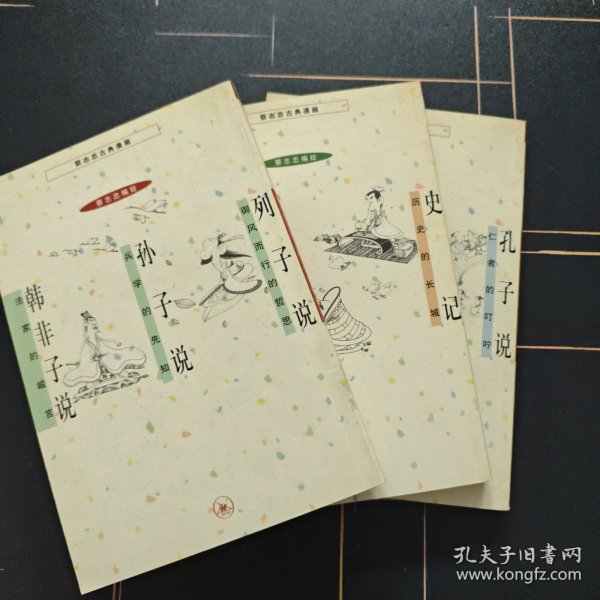 蔡志忠古典漫画
蔡志忠编绘
列子说
御风而行的哲思
孙子说
兵学的先知
韩非子说
法家的峻言
蔡志忠古典漫画
蔡志忠编绘
史记
历史的长城
孔子说
仁者的叮咛
孔夫子旧书网
www.kongfz.com